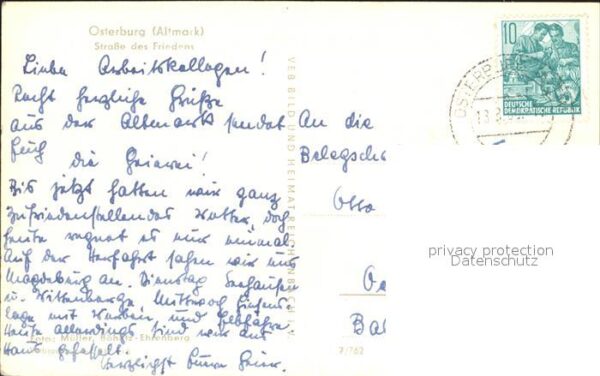 Osterburg (Altmark)
Straße des Friedens
Liebe Arbeitskollegen!
Recht herzliche Grüße
aus der Altmark sendet
Euch die
Bis jetzt hatten wir ganz
zufriedenstellendes Wetter, doch
heute regnet es nur einmal
Auf der Herfahrt sahen wir uns
Magdeburg an. Dienstag Seehausen
u. Wittenberge, Mittwoch
mit Werben, und
Heute allerdings sind wir ans
Haus gefesselt.
Herzlichst
Foto: Müller, Ehrenberg
VEB BILD UND HEIMAT REICHENBACH
7/762
An die
Belegsch
Otto
10
DEUTSCHE
DEMOKRATISCHE REPUBLIK
privacy protection
Datenschutz